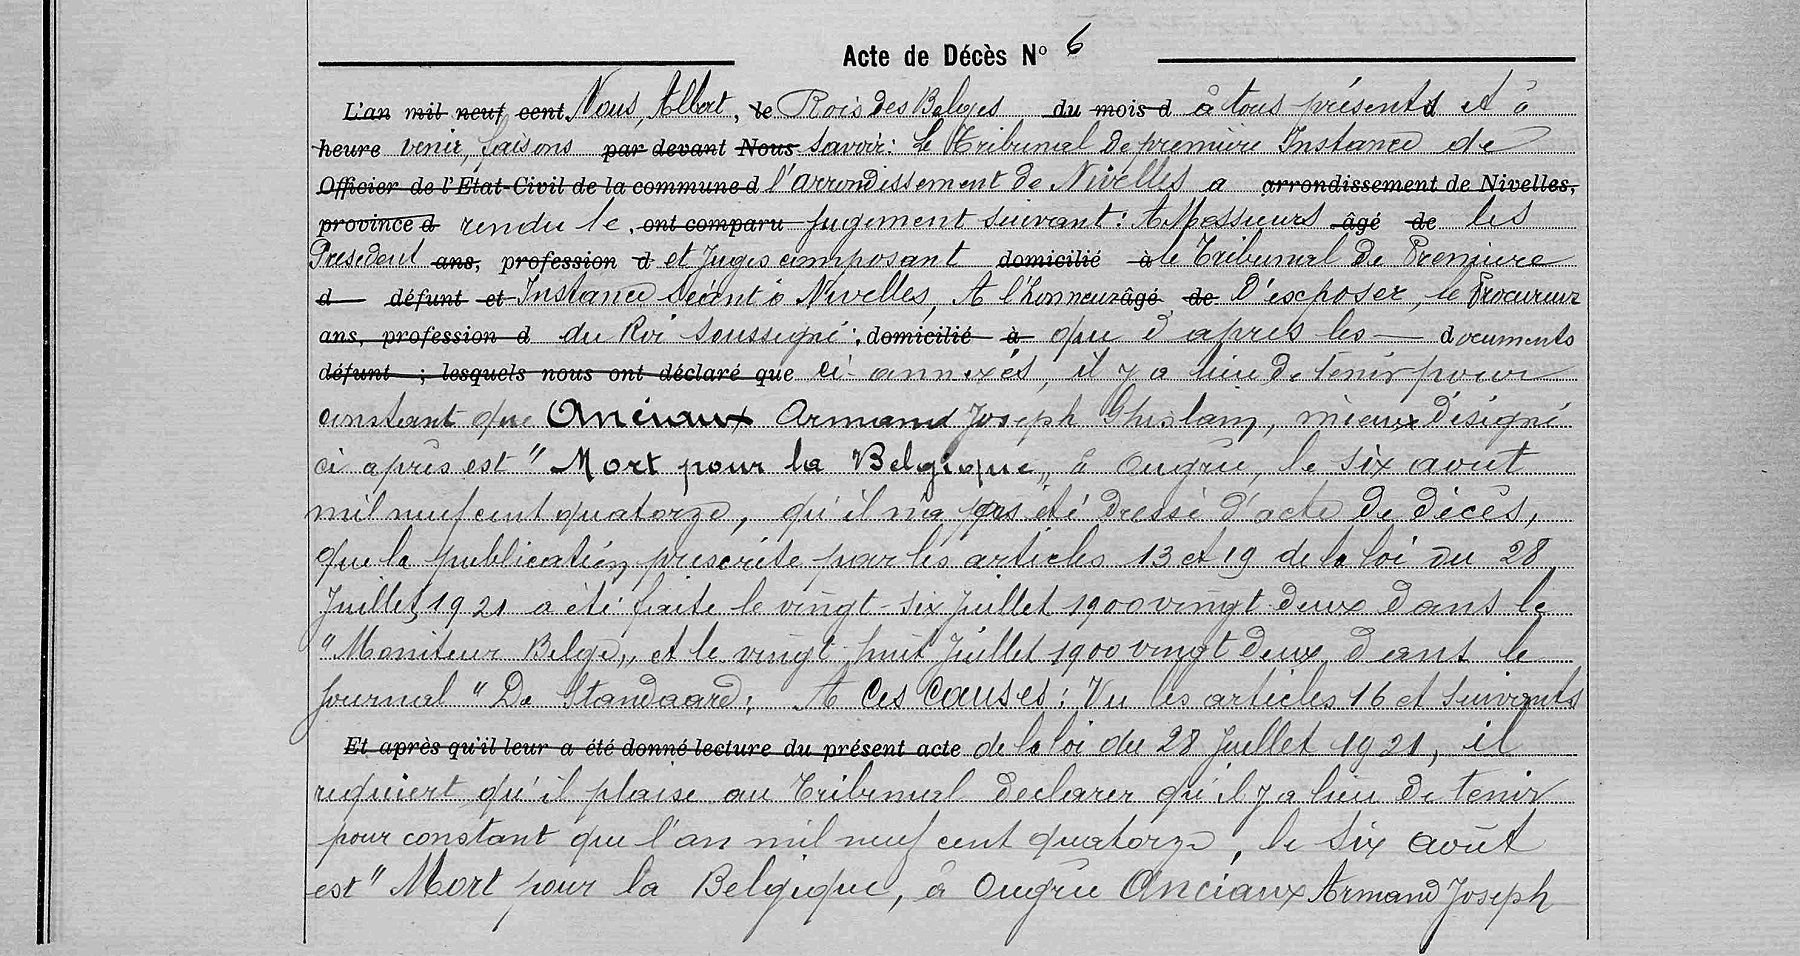 Acte de Décès Nº 6
L'an mil neuf cent Nous, Albert, le Rois des Belges du mois d à tous présents et à
heure venir, faisons par devant Nous savoir: Le Tribunal de première Instance de
Officier de l'État-Civil de la commune d l'arrondissement de Nivelles a arrondissement de Nivelles,
province d rendu le ont comparu jugement suivant: A Messieurs âgé de les
Président ans, profession d et Juges composant domicilié à le Tribunal de Première
d défunt et Instance séant à Nivelles, A l'honneur âgé de D'exposer, le Procureur
ans, profession d du Roi soussigné: domicilié à que d'après les documents
défunt ; lesquels nous ont déclaré que ci-annexés, il y a lieu de tenir pour
constant que Anciaux Armand Joseph Ghislain, mieux désigné
ci après est "Mort pour la Belgique„ à Ougrée, le six août
mil neuf cent quatorze, qu'il n'a pas été dressé d'acte de décès,
que la publication prescrite par les articles 13 et 19 de la loi du 28
Juillet 1921 a été faite le vingt-six Juillet 1900 vingt deux dans le
"Moniteur Belge„ et le vingt huit Juillet 1900 vingt deux dans le
journal "De Standaard; A ces causes: Vu les articles 16 et suivants
Et après qu'il leur a été donné lecture du présent acte de la loi du 28 Juillet 1921, il
requiert qu'il plaise au Tribunal declarer qu'il y a lieu de tenir
pour constant que l'an mil neuf cent quatorze, le six août
est "Mort pour la Belgique, à Ougrée Anciaux Armand Joseph